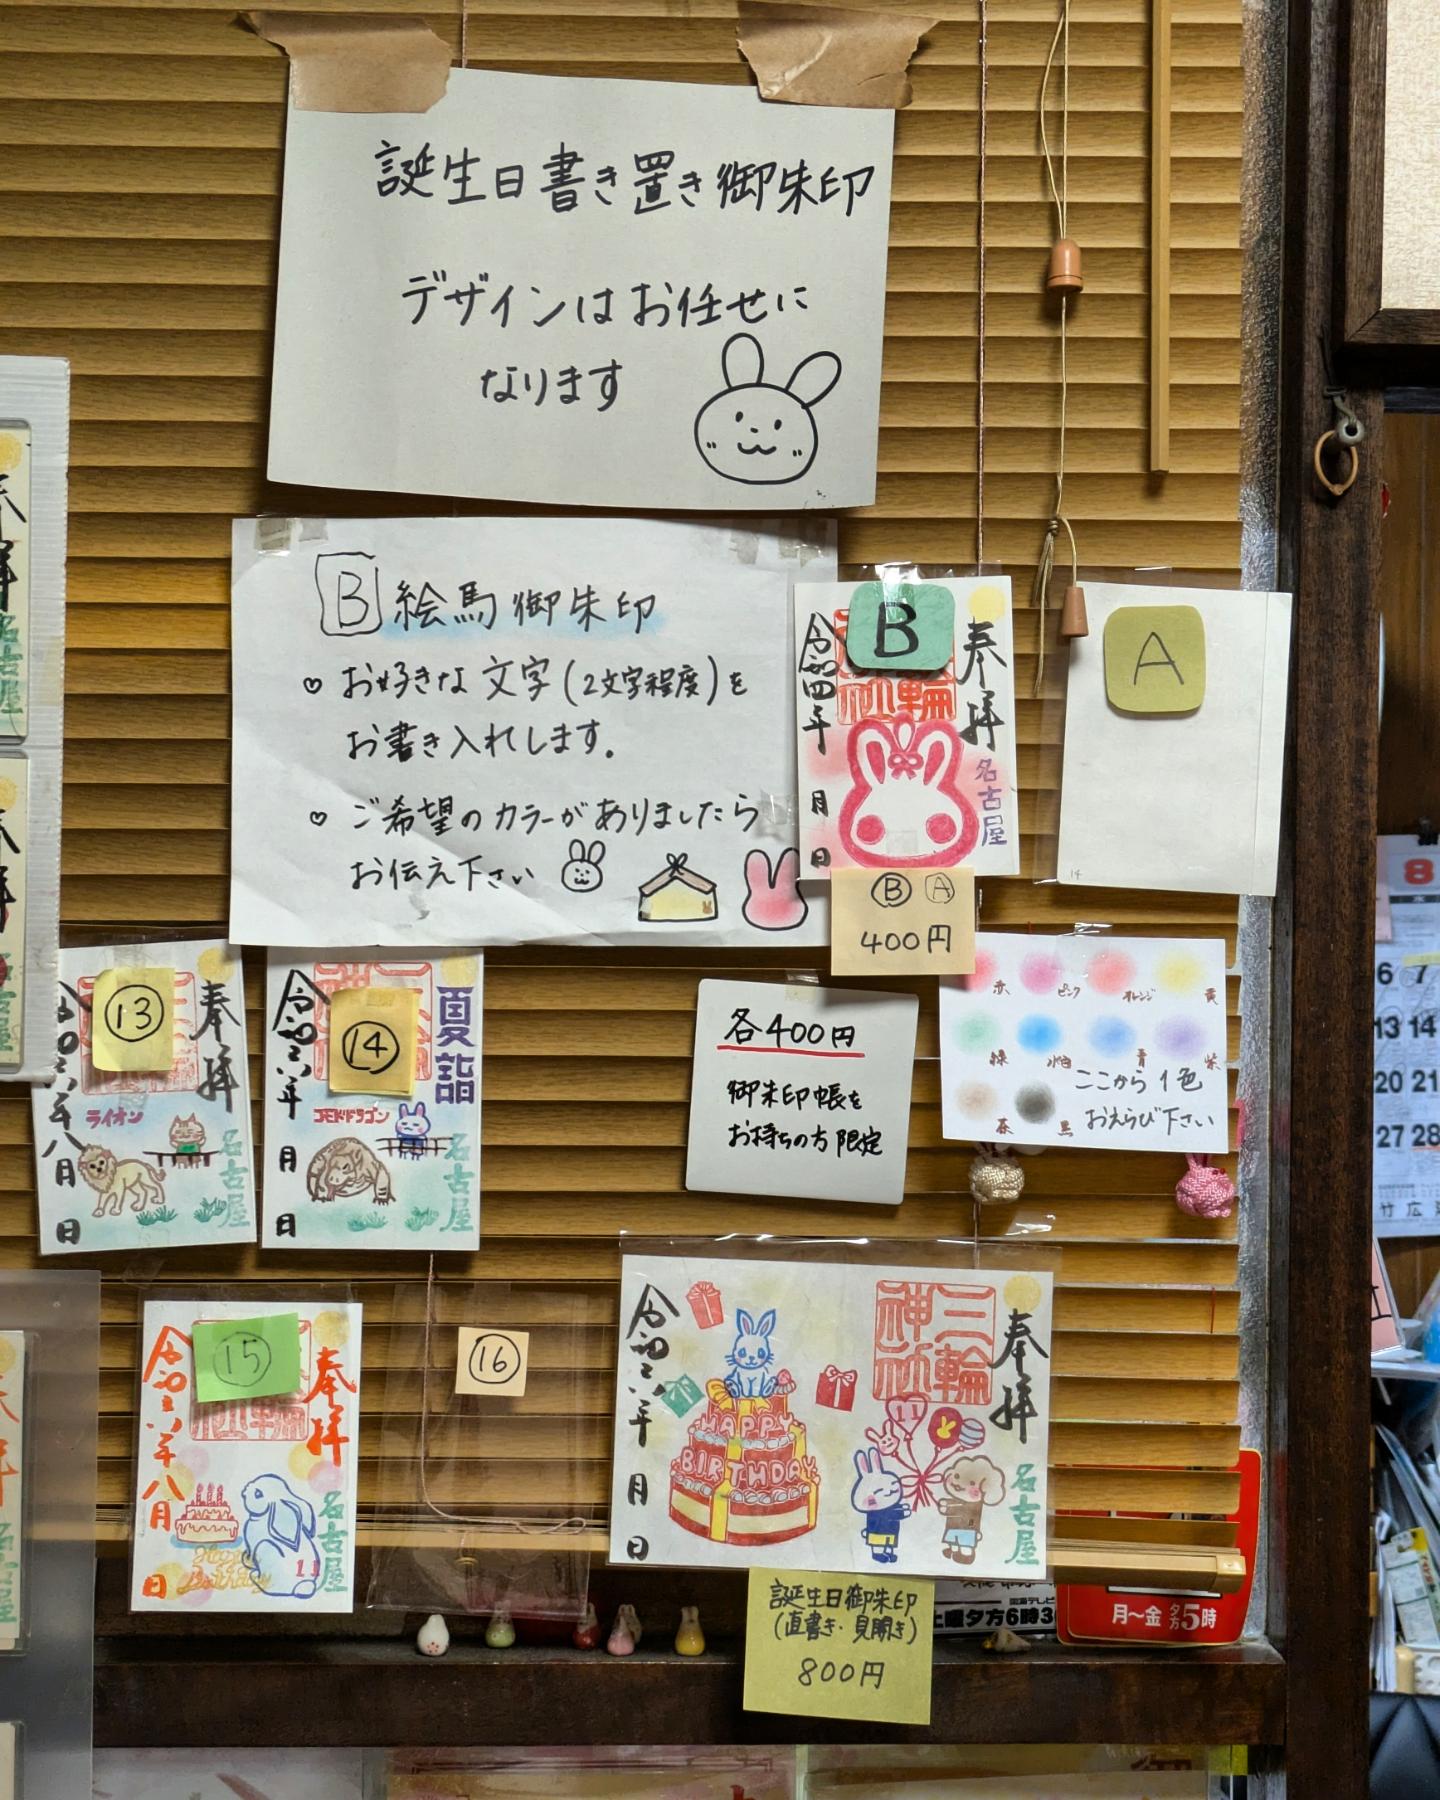 誕生日書き置き御朱印
デザインはお任せに
なります
B 絵馬御朱印
♡ お好きな文字(2文字程度)を
お書き入れします。
♡ ご希望のカラーがありましたら
お伝え下さい
B
奉拝
三輪神社
令和四年
月
日
名古屋
B A
400円
A
14
赤 ピンク オレンジ 黄
緑 水色 青 紫
茶 黒
ここから1色
おえらび下さい
各400円
御朱印帳を
お持ちの方限定
13
奉拝
令和六年八月
日
ライオン
名古屋
14
夏詣
令和六年
月
日
コモドドラゴン
名古屋
15
奉拝
令和六年八月
日
Happy
Birthday
11
名古屋
16
奉拝
三輪
神社
令和六年
月
日
HAPPY
BIRTHDAY
11
名古屋
誕生日御朱印
(直書き・見開き)
800円
土曜夕方6時3
月~金 夕方5時
8
6 7
13 14
20 21
27 28
竹広
奉拝
名古屋